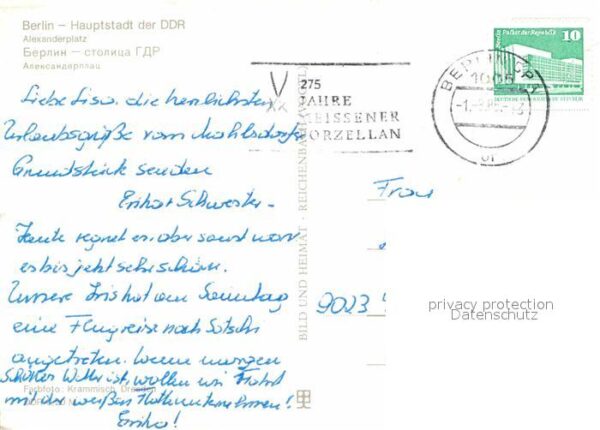 Berlin – Hauptstadt der DDR
Alexanderplatz
Берлин – столица ГДР
Александерплац
Liebe Lisa, die herzlichsten
Urlaubsgrüße vom Mahlsdorfer
Grundstück senden
Erika + Schwester.
Heute regnet es, aber sonst war
es bis jetzt sehr schön.
Unsere Iris hat am Samstag
eine Flugreise nach Sotschi
angetreten. Wenn morgen
schönes Wetter ist, wollen wir Fahrt
mit der weißen Flotte unternehmen!
Erika!
Farbfoto: Krammisch, Dresden
BILD UND HEIMAT · REICHENBACH
275
JAHRE
MEISSENER
PORZELLAN
BERLIN
1085
Berlin Palast der Republik
10
DEUTSCHE DEMOKRATISCHE REPUBLIK
Frau
9023
privacy protection
Datenschutz